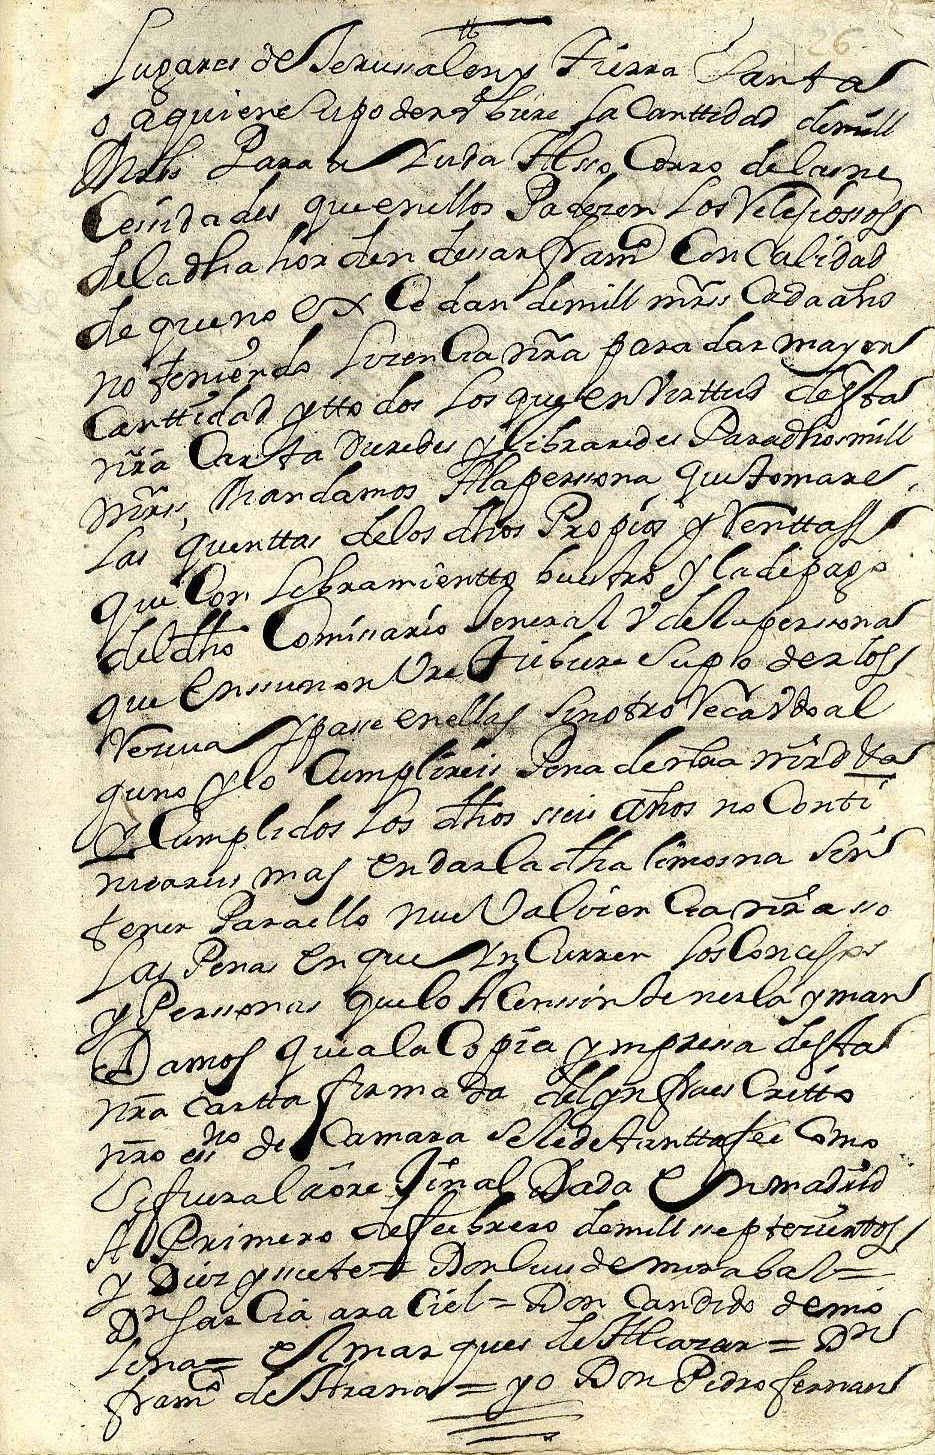 26
Lugares de Jerusalen y tierra santa
o a quien su poder hubiere la canttidad de mill
Mrs Para aiuda Al so Corro de las ne
Cesidades que en ellos Padezen Los Relixiossos
de la dha horden de san franco Con Calidad
de que no exCedan de mill mrs Cada año
no teniendo lizenCia nra para dar mayor
Canttidad y ttodos los que en Virttud desta
nra Carta dieredes y libraredes Para dhos mill
mrs, Mandamos A la persona que tomare
Las quenttas de los dhos Propios y Renttas
que Con libramientto buestro y la de pago
del dho Comisario General V de la persona
que en su nombre tubiere su poder los
Reciva y pase en ellas sin otro Recavdo al
guno y lo Cumplireis Pena de la nra md
y Cumplidos los dhos seis años no Conti
nuareis mas en dar la dha limosna sin
tener Para ello nueva lizenCia nra so
Las Penas en que inCurren los Concejos
y Personas que lo Acen sin tenerla y man
Damos que a la Copia ympresa desta
nra cartta firmada del ynfraesCritto
nro essno de Camara se le de tantta fee Como
si fuera la orijinal Dada en madrid
A Primero de febrero de mill septecientos
y Diez y siete = Don luis de miraval =
Dn garCia araCiel = Don Candido de mo
lina = el marques de Alcazar = Dn
franco de Arana = yo Don Pedro fernan